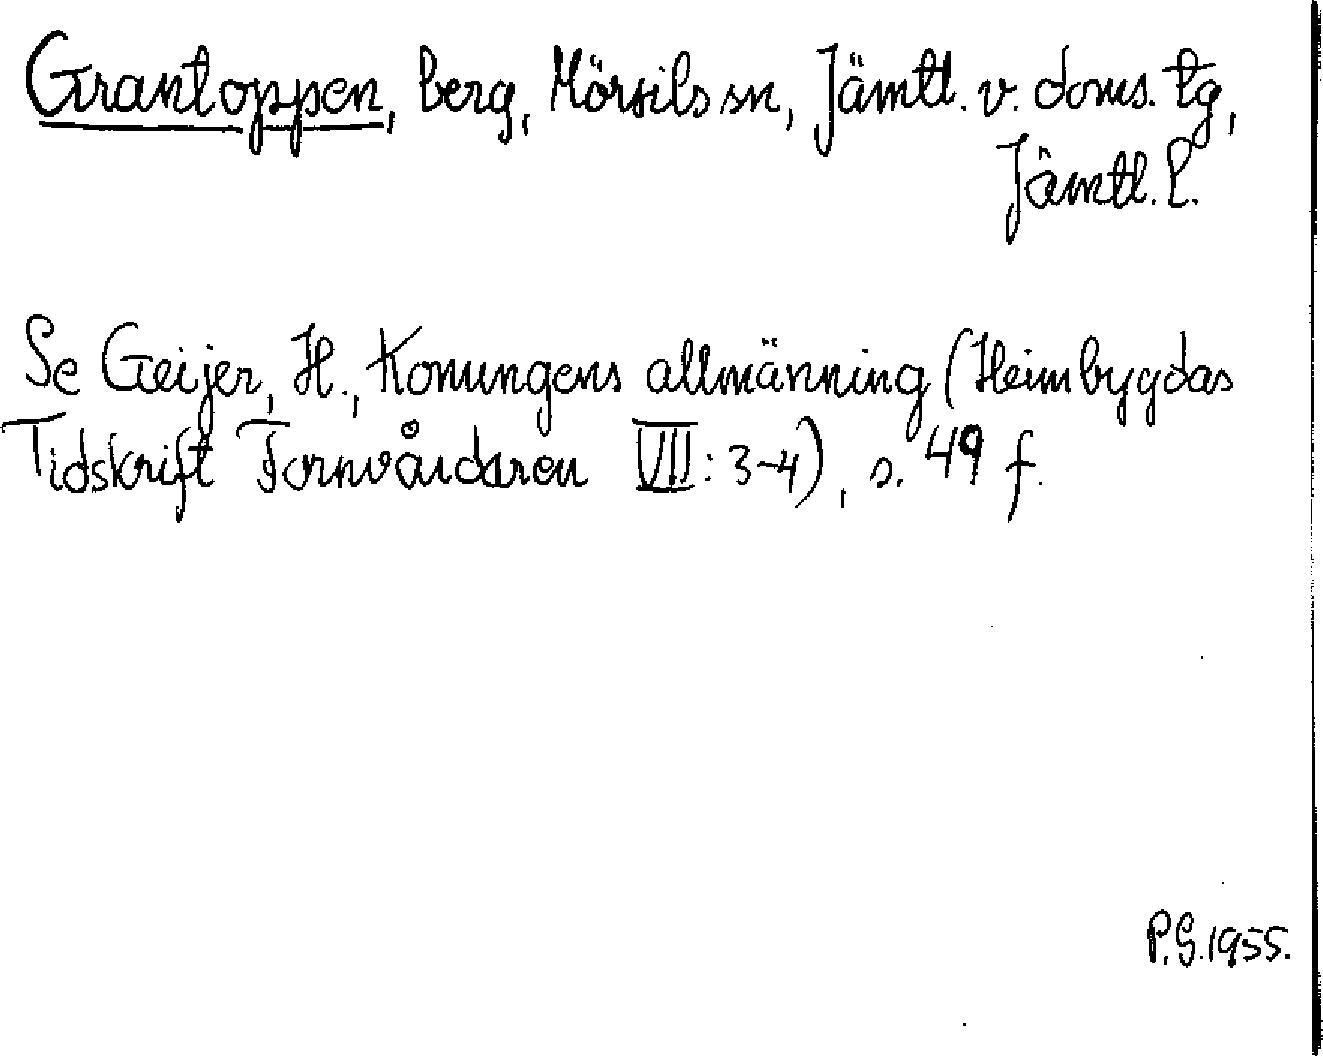 Grantoppen, berg, Mörsils sn, Jämtl. v. doms. tg,
Jämtl. l.
Se Geijer, H., Konungens allmänning (Heimbygdas
Tidskrift Fornvårdaren VII: 3-4), s. 49 f.
P.G. 1955.